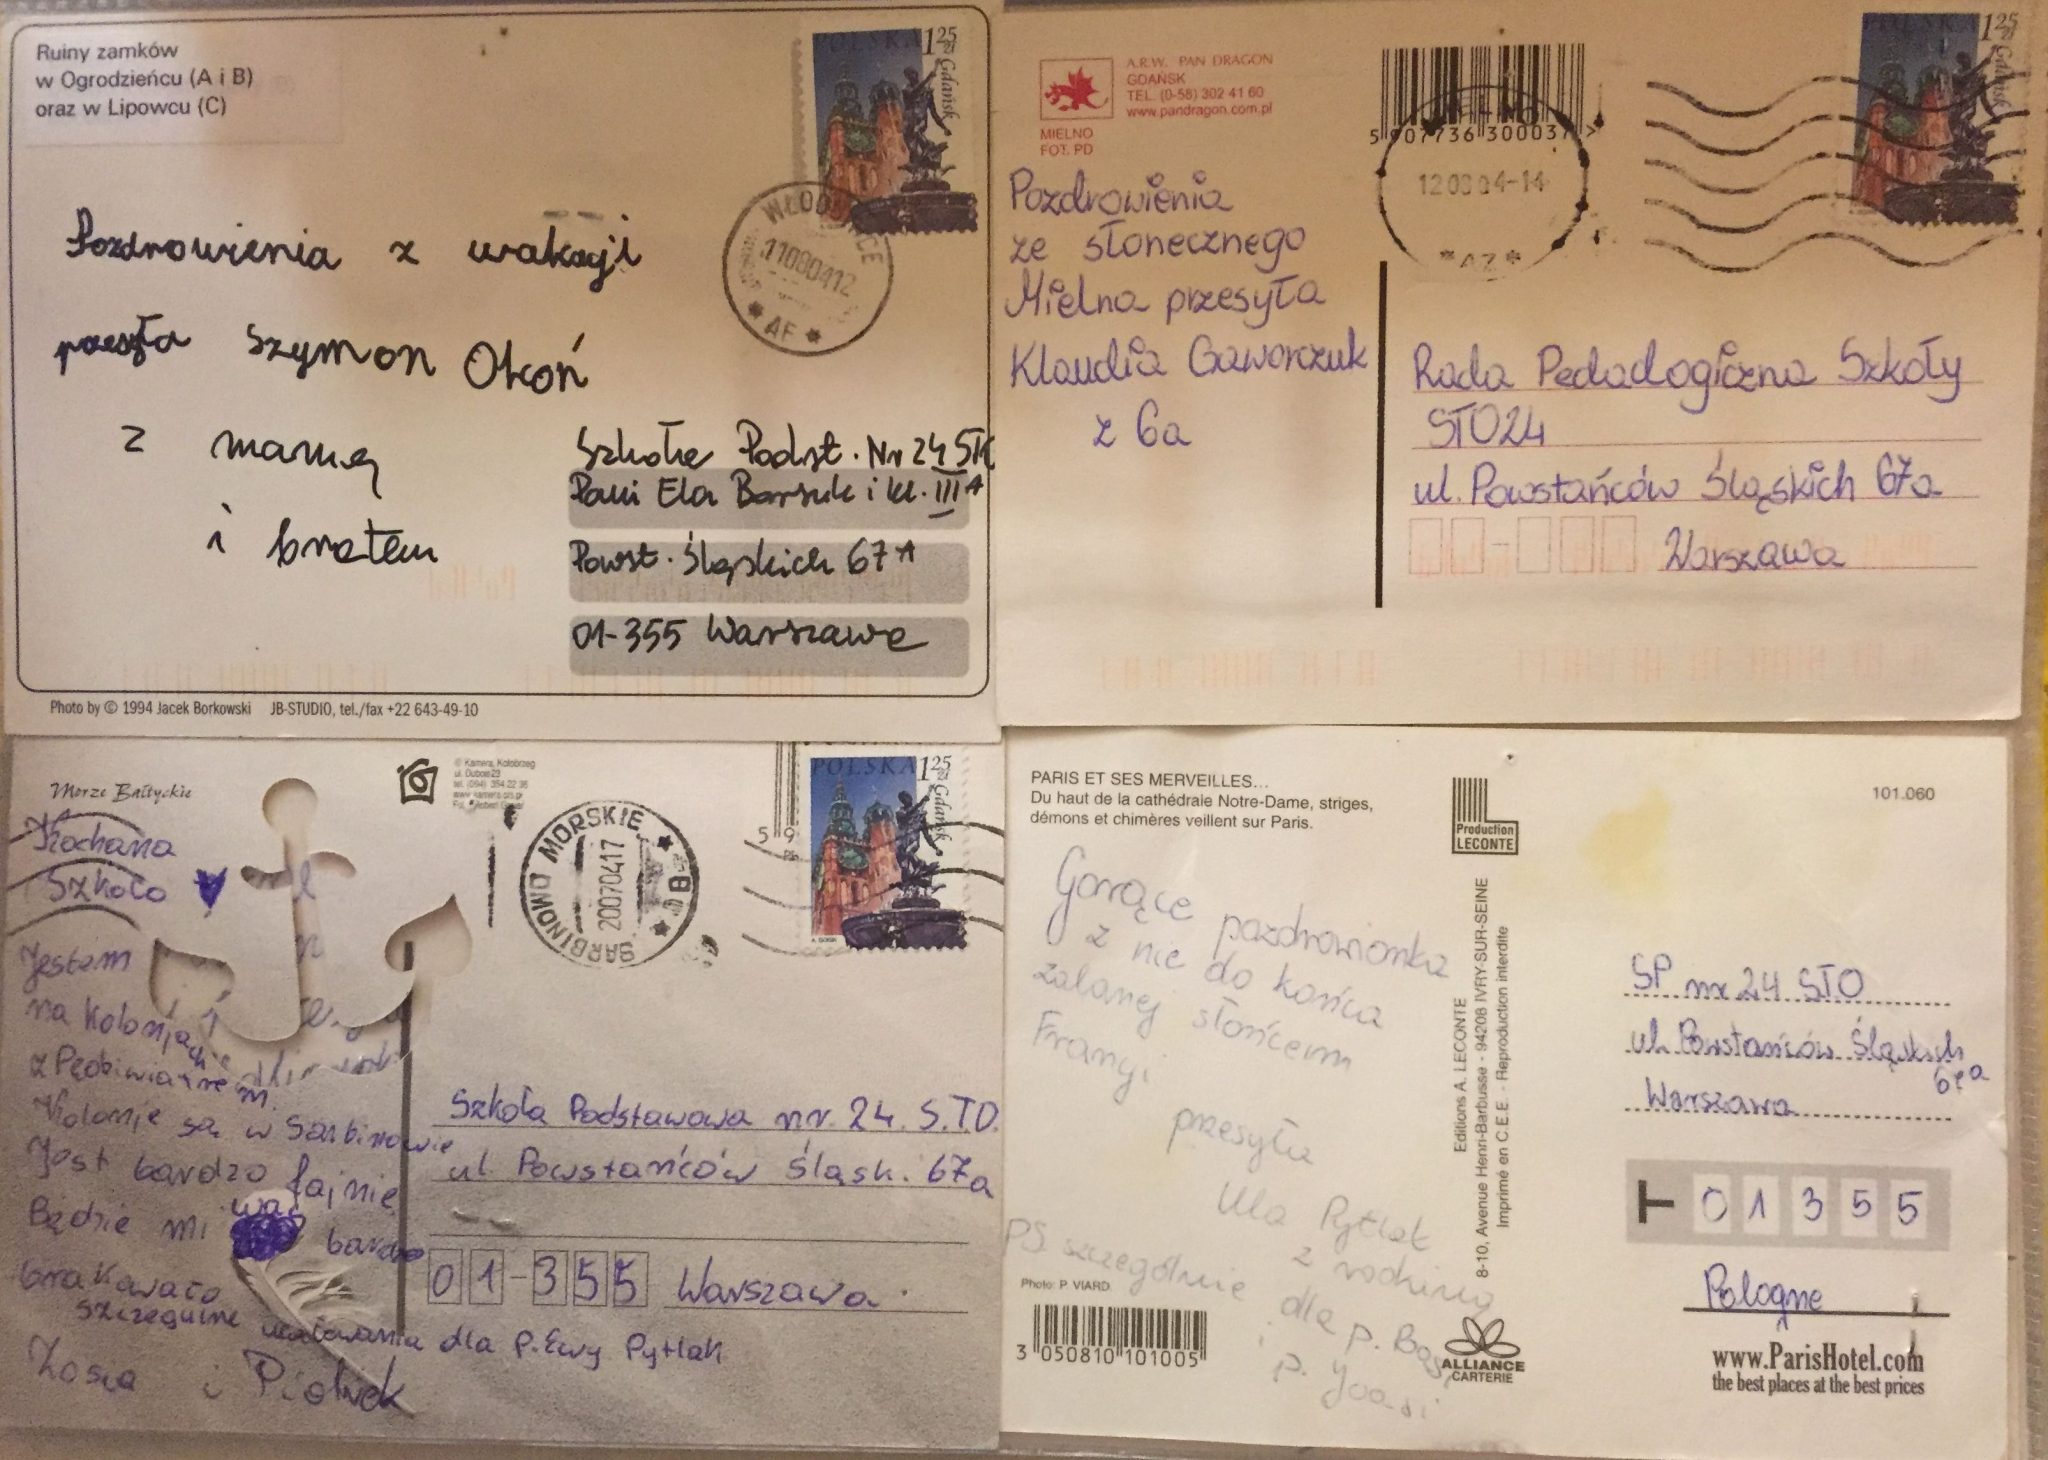 Ruiny zamków
w Ogrodzieńcu (A i B)
oraz w Lipowcu (C)
POLSKA 1 25 zł
Gdańsk
110804 12
* AF *
Pozdrowienia z wakacji
przesyła Szymon Okoń
z mamą
i bratem
Szkoła Podst. Nr 24 STO
Pani Ela Barsuk i kl. III A
Powst. Śląskich 67 A
01-355 Warszawa
Photo by © 1994 Jacek Borkowski JB-STUDIO, tel./fax +22 643-49-10
A.R.W. PAN DRAGON
GDAŃSK
TEL. (0-58) 302 41 60
www.pandragon.com.pl
MIELNO
FOT. PD
5 907736 300037 >
POLSKA 1 25 zł
Gdańsk
120804-14
* AZ *
Pozdrowienia
ze słonecznego
Mielna przesyła
Klaudia Gaworczuk
z 6a
Rada Pedadogiczna Szkoły
STO24
ul. Powstańców Śląskich 67a
Warszawa
Morze Bałtyckie
© Kamera, Kołobrzeg
ul. Dubois 23
POLSKA 1 25 zł
Gdańsk
5 9
SARBINOWO MORSKIE
200704 17
Kochana
Szkoło
Jestem
na kolonjach
Kolonje są w Sarbinowie
Jest bardzo fajnie
Będzie mi was bardzo
brakowało
szczegulne ucałowania dla p. Ewy Pytlak
Zosia i Piotrek
Szkoła Podstawowa nr. 24. S.T.O.
ul. Powstańców Śląsk. 67a
01-355 Warszawa.
PARIS ET SES MERVEILLES...
Du haut de la cathédrale Notre-Dame, striges,
démons et chimères veillent sur Paris.
Production
LECONTE
101.060
Gorące pozdrowionka
z nie do końca
zalanej słońcem
Francji
przesyła
Ula Pytlak
z rodziną
PS. szczególnie dla p. Basi
i p. Joasi
Photo: P. VIARD
3 050810 101005
Editions A. LECONTE
8-10, Avenue Henri-Barbusse - 94208 IVRY-SUR-SEINE
Imprimé en C.E.E. - Reproduction interdite
ALLIANCE
CARTERIE
SP nr 24 STO
ul. Powstańców Śląskich
67a
Warszawa
01355
Pologne
www.ParisHotel.com
the best places at the best prices